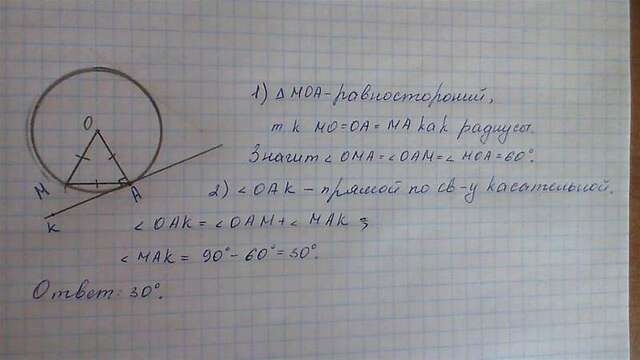 O
M
A
K
1) Δ MOA - равностороний,
т.к MO = OA = MA как радиусы.
Значит ∠OMA = ∠OAM = ∠MOA = 60°.
2) ∠OAK - прямой по св-у касательной.
∠OAK = ∠OAM + ∠MAK ⇒
∠MAK = 90° - 60° = 30°.
Ответ: 30°.